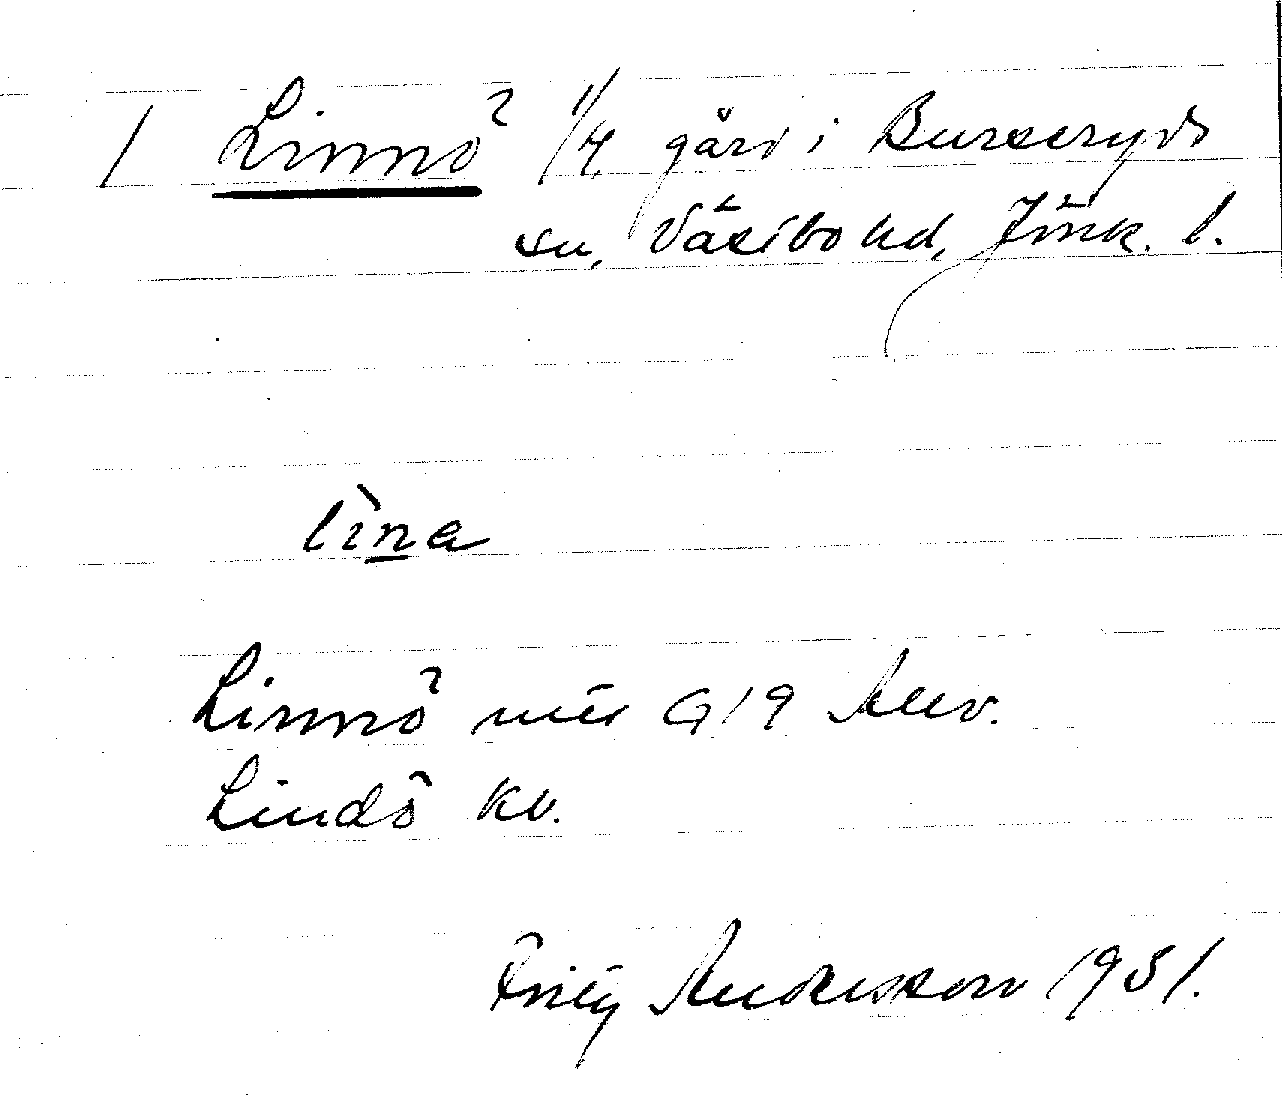 1 Linnö 1/4 gård i Burseryds
sn, Västbo hd, Jönk. l.
lìna
Linnö när G19 Anv.
Lindö kb.
Fritz Andersson 1931.